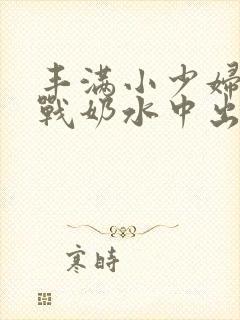 丰满小少婦
戰奶水中出
寒時